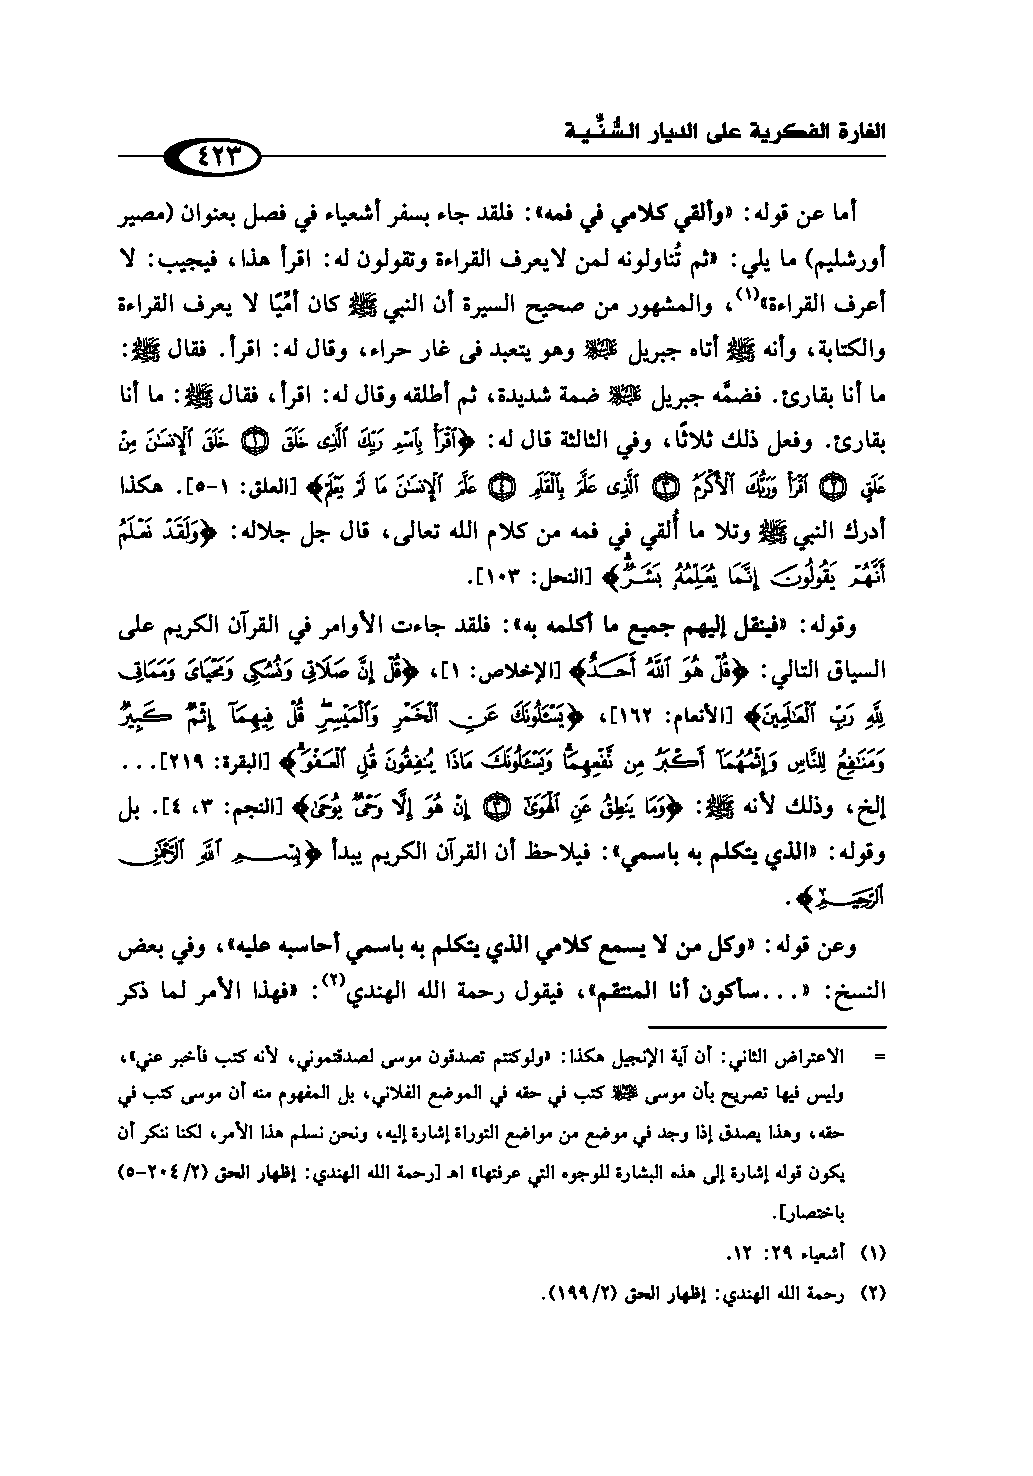 الغارة الفكرية على الديار السُّنِّـيـة
٤٢٣
أما عن قوله: «وألقي كلامي في فمه»: فلقد جاء بسفر أشعياء في فصل بعنوان (مصير
أورشليم) ما يلي: «ثم تُناولونه لمن لايعرف القراءة وتقولون له: اقرأ هذا، فيجيب: لا
أعرف القراءة»(١)، والمشهور من صحيح السيرة أن النبي ﷺ كان أمِّيًا لا يعرف القراءة
والكتابة، وأنه ﷺ أتاه جبريل ﵇ وهو يتعبد فى غار حراء، وقال له: اقرأ. فقال ﷺ:
ما أنا بقارئ. فضمَّه جبريل ﵇ ضمة شديدة، ثم أطلقه وقال له: اقرأ، فقال ﷺ: ما أنا
بقارئ. وفعل ذلك ثلاثًا، وفي الثالثة قال له: ﴿ٱقْرَأْ بِٱسْمِ رَبِّكَ ٱلَّذِى خَلَقَ ۝١ خَلَقَ ٱلْإِنسَٰنَ مِنْ
عَلَقٍ ۝٢ ٱقْرَأْ وَرَبُّكَ ٱلْأَكْرَمُ ۝٣ ٱلَّذِى عَلَّمَ بِٱلْقَلَمِ ۝٤ عَلَّمَ ٱلْإِنسَٰنَ مَا لَمْ يَعْلَمْ﴾ [العلق: ١-٥]. هكذا
أدرك النبي ﷺ وتلا ما أُلقي في فمه من كلام الله تعالى، قال جل جلاله: ﴿وَلَقَدْ نَعْلَمُ
أَنَّهُمْ يَقُولُونَ إِنَّمَا يُعَلِّمُهُۥ بَشَرٌ ۗ﴾ [النحل: ١٠٣].
وقوله: «فينقل إليهم جميع ما أكلمه به»: فلقد جاءت الأوامر في القرآن الكريم على
السياق التالي: ﴿قُلْ هُوَ ٱللَّهُ أَحَدٌ﴾ [الإخلاص: ١]، ﴿قُلْ إِنَّ صَلَاتِى وَنُسُكِى وَمَحْيَاىَ وَمَمَاتِى
لِلَّهِ رَبِّ ٱلْعَٰلَمِينَ﴾ [الأنعام: ١٦٢]، ﴿يَسْـَٔلُونَكَ عَنِ ٱلْخَمْرِ وَٱلْمَيْسِرِ ۖ قُلْ فِيهِمَآ إِثْمٌ كَبِيرٌ
وَمَنَٰفِعُ لِلنَّاسِ وَإِثْمُهُمَآ أَكْبَرُ مِن نَّفْعِهِمَا ۗ وَيَسْـَٔلُونَكَ مَاذَا يُنفِقُونَ قُلِ ٱلْعَفْوَ ۗ﴾ [البقرة: ٢١٩]...
إلخ، وذلك لأنه ﷺ: ﴿وَمَا يَنطِقُ عَنِ ٱلْهَوَىٰٓ ۝٣ إِنْ هُوَ إِلَّا وَحْىٌ يُوحَىٰ﴾ [النجم: ٣، ٤]. بل
وقوله: «الذي يتكلم به باسمي»: فيلاحظ أن القرآن الكريم يبدأ ﴿بِسْمِ ٱللَّهِ ٱلرَّحْمَٰنِ
ٱلرَّحِيمِ﴾.
وعن قوله: «وكل من لا يسمع كلامي الذي يتكلم به باسمي أحاسبه عليه»، وفي بعض
النسخ: «...سأكون أنا المنتقم»، فيقول رحمة الله الهندي(٢): «فهذا الأمر لما ذكر
= الاعتراض الثاني: أن آية الإنجيل هكذا: «ولوكنتم تصدقون موسى لصدقتموني، لأنه كتب فأخبر عني»،
وليس فيها تصريح بأن موسى ﵇ كتب في حقه في الموضع الفلاني، بل المفهوم منه أن موسى كتب في
حقه، وهذا يصدق إذا وجد في موضع من مواضع التوراة إشارة إليه، ونحن نسلم هذا الأمر، لكنا ننكر أن
يكون قوله إشارة إلى هذه البشارة للوجوه التي عرفتها» اهـ [رحمة الله الهندي: إظهار الحق (٢/ ٢٠٤-٥)
باختصار].
(١) أشعياء ٢٩: ١٢.
(٢) رحمة الله الهندي: إظهار الحق (٢/ ١٩٩).